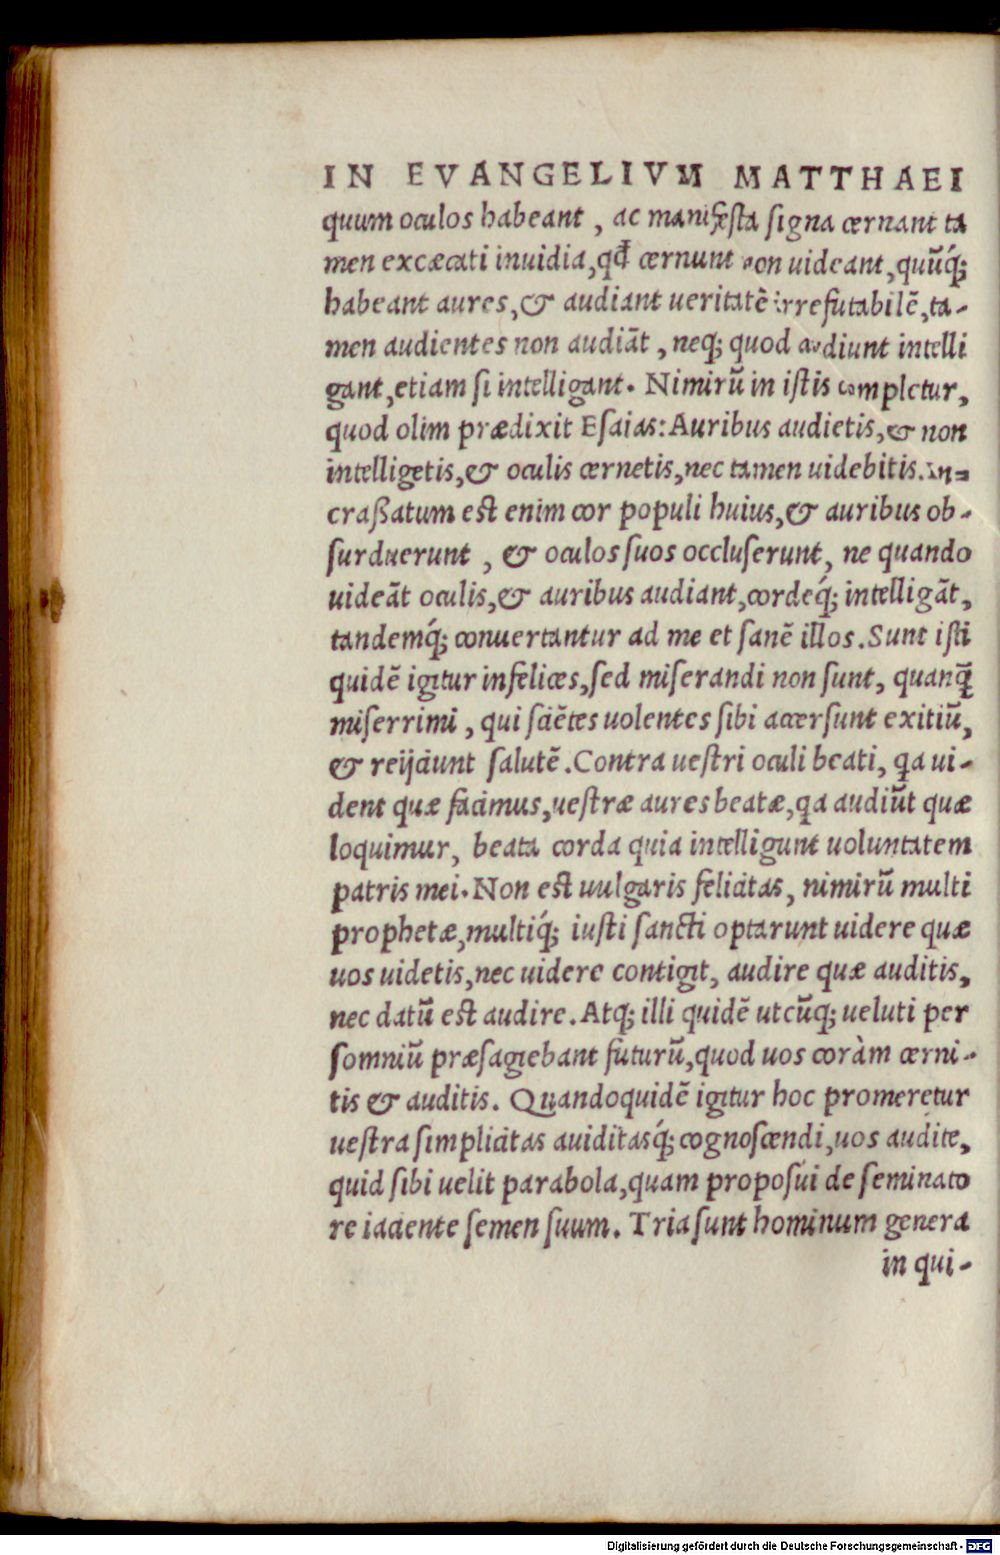 IN EVANGELIVM MATTHAEI
quum oculos habeant , ac manifesta signa cernant ta
men excæcati inuidia, qđ cernunt non uideant, quūq́;
habeant aures, & audiant ueritatē irrefutabilē, ta-
men audientes non audiāt , neq; quod audiunt intelli
gant, etiam si intelligant. Nimirū in istis completur,
quod olim prædixit Esaias: Auribus audietis, & non
intelligetis, & oculis cernetis, nec tamen uidebitis. In=
craßatum est enim cor populi huius, & auribus ob-
surduerunt , & oculos suos occluserunt, ne quando
uideāt oculis, & auribus audiant, cordeq́; intelligāt,
tandemq́; conuertantur ad me et sanē illos. Sunt isti
quidē igitur infelices, sed miserandi non sunt, quanq̄
miserrimi , qui sciētes uolentes sibi accersunt exitiū,
& reijciunt salutē. Contra uestri oculi beati, qa ui-
dent quæ facimus, uestræ aures beatæ, qa audiūt quæ
loquimur, beata corda quia intelligunt uoluntatem
patris mei. Non est uulgaris felicitas, nimirū multi
prophetæ, multiq́; iusti sancti optarunt uidere quæ
uos uidetis, nec uidere contigit, audire quæ auditis,
nec datū est audire. Atq; illi quidē utcūq; ueluti per
somniū præsagiebant futurū, quod uos coràm cerni-
tis & auditis. Quandoquidē igitur hoc promeretur
uestra simplicitas auiditasq́; cognoscendi, uos audite,
quid sibi uelit parabola, quam proposui de seminato
re iaciente semen suum. Tria sunt hominum genera
in qui-
Digitalisierung gefördert durch die Deutsche Forschungsgemeinschaft - DFG